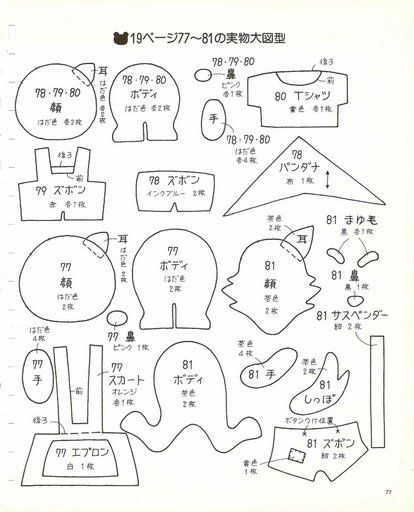 19ページ77～81の実物大図型
耳
はだ色 各2枚
78・79・80
顔
はだ色 各2枚
78・79・80
ボディ
はだ色 各2枚
78・79・80
鼻
ピンク
各1枚
手
78・79・80
はだ色
各4枚
後3
前
80 Tシャツ
黄色 各1枚
後3
前
79 ズボン
赤 各1枚
78 ズボン
インクブルー 2枚
78
バンダナ
布 1枚
耳
はだ色 2枚
77
顔
はだ色
2枚
77
ボディ
はだ色
2枚
77 鼻
ピンク 1枚
茶色
2枚
耳
81
顔
茶色
2枚
81 まゆ毛
黒 各1枚
81 鼻
黒 1枚
81 サスペンダー
紺 2枚
はだ色
4枚
77 手
前
後3
77
スカート
オレンジ
各1枚
77 エプロン
白 1枚
81
ボディ
茶色
2枚
茶色
4枚
81 手
茶色
2枚
81
しっぽ
ボタンつけ位置
81 ズボン
紺 2枚
黄色
1枚
77